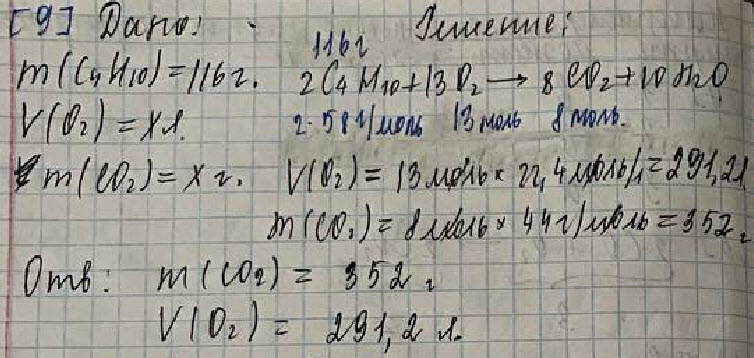 [9] Дано: Решение:
116 г
m(C4H10)=116 г. 2C4H10+13O2→8CO2+10H2O
V(O2)=X л. 2·58 г/моль 13 моль 8 моль.
m(CO2)=X г. V(O2)=13 моль × 22,4 моль/л=291,2 л
m(CO2)=8 моль × 44 г/моль=352 г
Отв: m(CO2)= 352 г
V(O2)= 291,2 л.